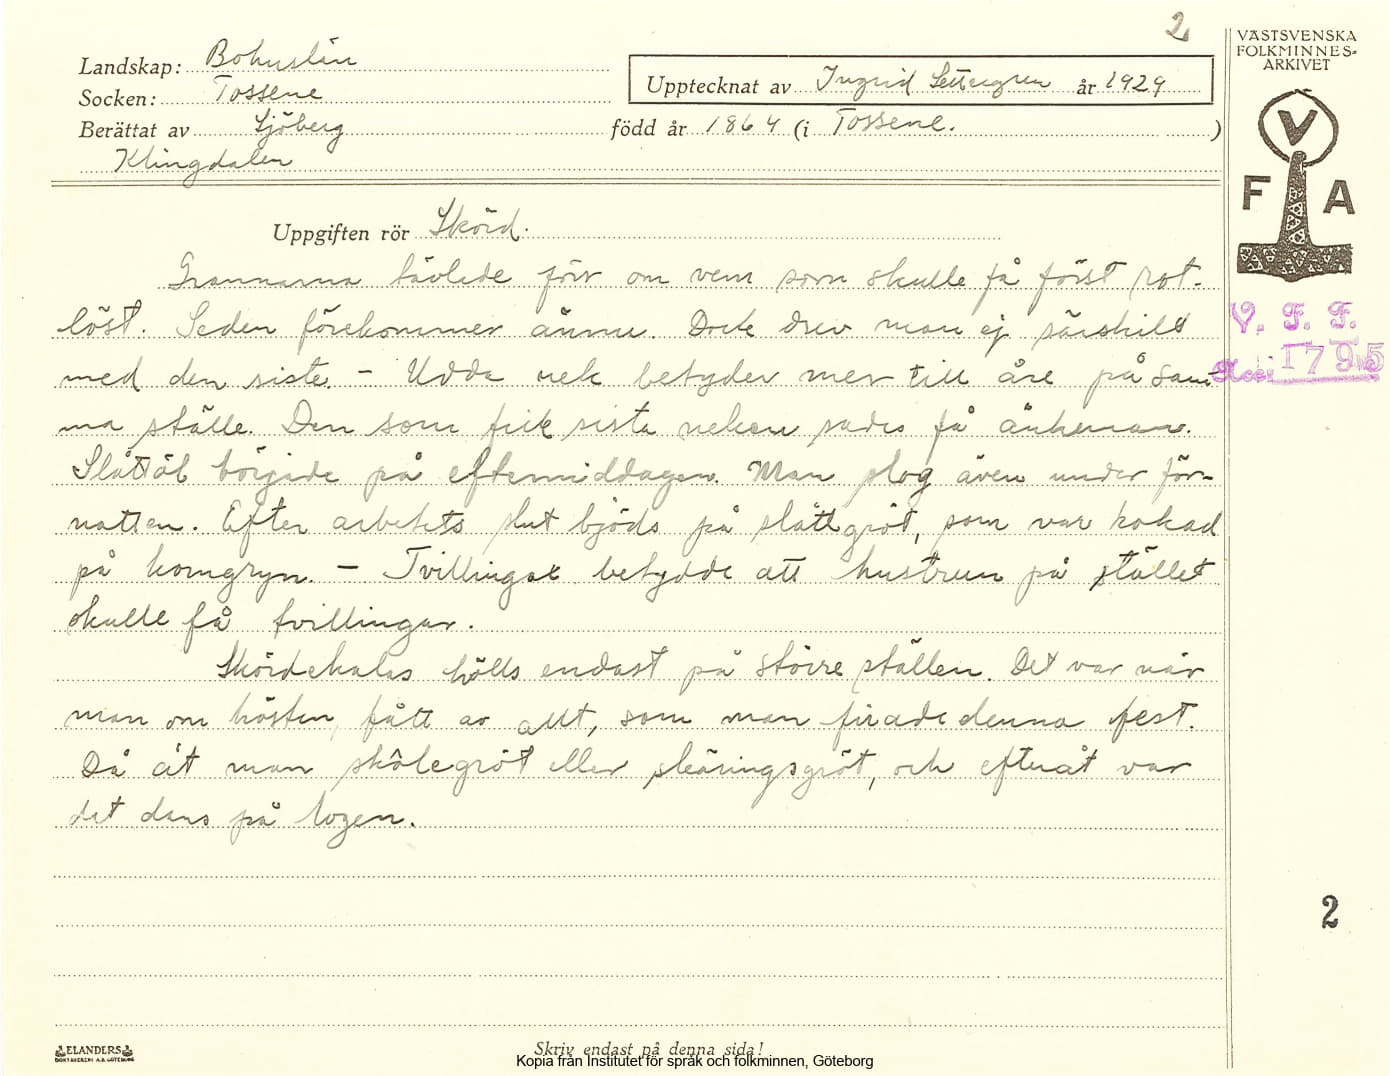 2
VÄSTSVENSKA
FOLKMINNES-
ARKIVET
Landskap: Bohuslän
Upptecknat av Ingrid Settergren år 1929
Socken: Tossene
Berättat av Sjöberg född år 1864 (i Tossene. )
Klingdalen
V
F A
Uppgiften rör Skörd.
Grannarna tävlade förr om vem som skulle få först rot-
löst. Seden förekommer ännu. Dock drev man ej särskilt
V. F. F.
med den siste. - Udda nek betyder mer till åre på sam-
Acc: 1795
ma ställe. Den som fick sista neken sades få änkeman.
Slåttöl började på eftermiddagen. Man slog även under för-
natten. Efter arbetets slut bjöds på slåttgröt, som var kokad
på korngryn. - Tvillingax betydde att hustrun på stället
skulle få tvillingar.
Skördekalas hölls endast på större ställen. Det var när
man om hösten, fått av allt, som man firade denna fest.
Då åt man skålegröt eller skäringsgröt, och efteråt var
det dans på logen.
2
ELANDERS
BOKTRYCKERI A.B. GÖTEBORG
Skriv endast på denna sida!
Kopia från Institutet för språk och folkminnen, Göteborg